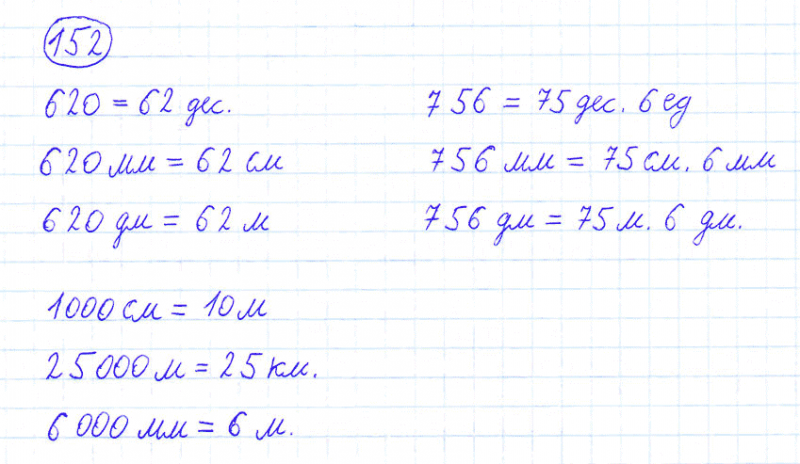 152
620 = 62 дес.
620 мм = 62 см
620 дм = 62 м
756 = 75 дес. 6 ед
756 мм = 75 см. 6 мм
756 дм = 75 м. 6 дм.
1000 см = 10 м
25000 м = 25 км.
6 000 мм = 6 м.